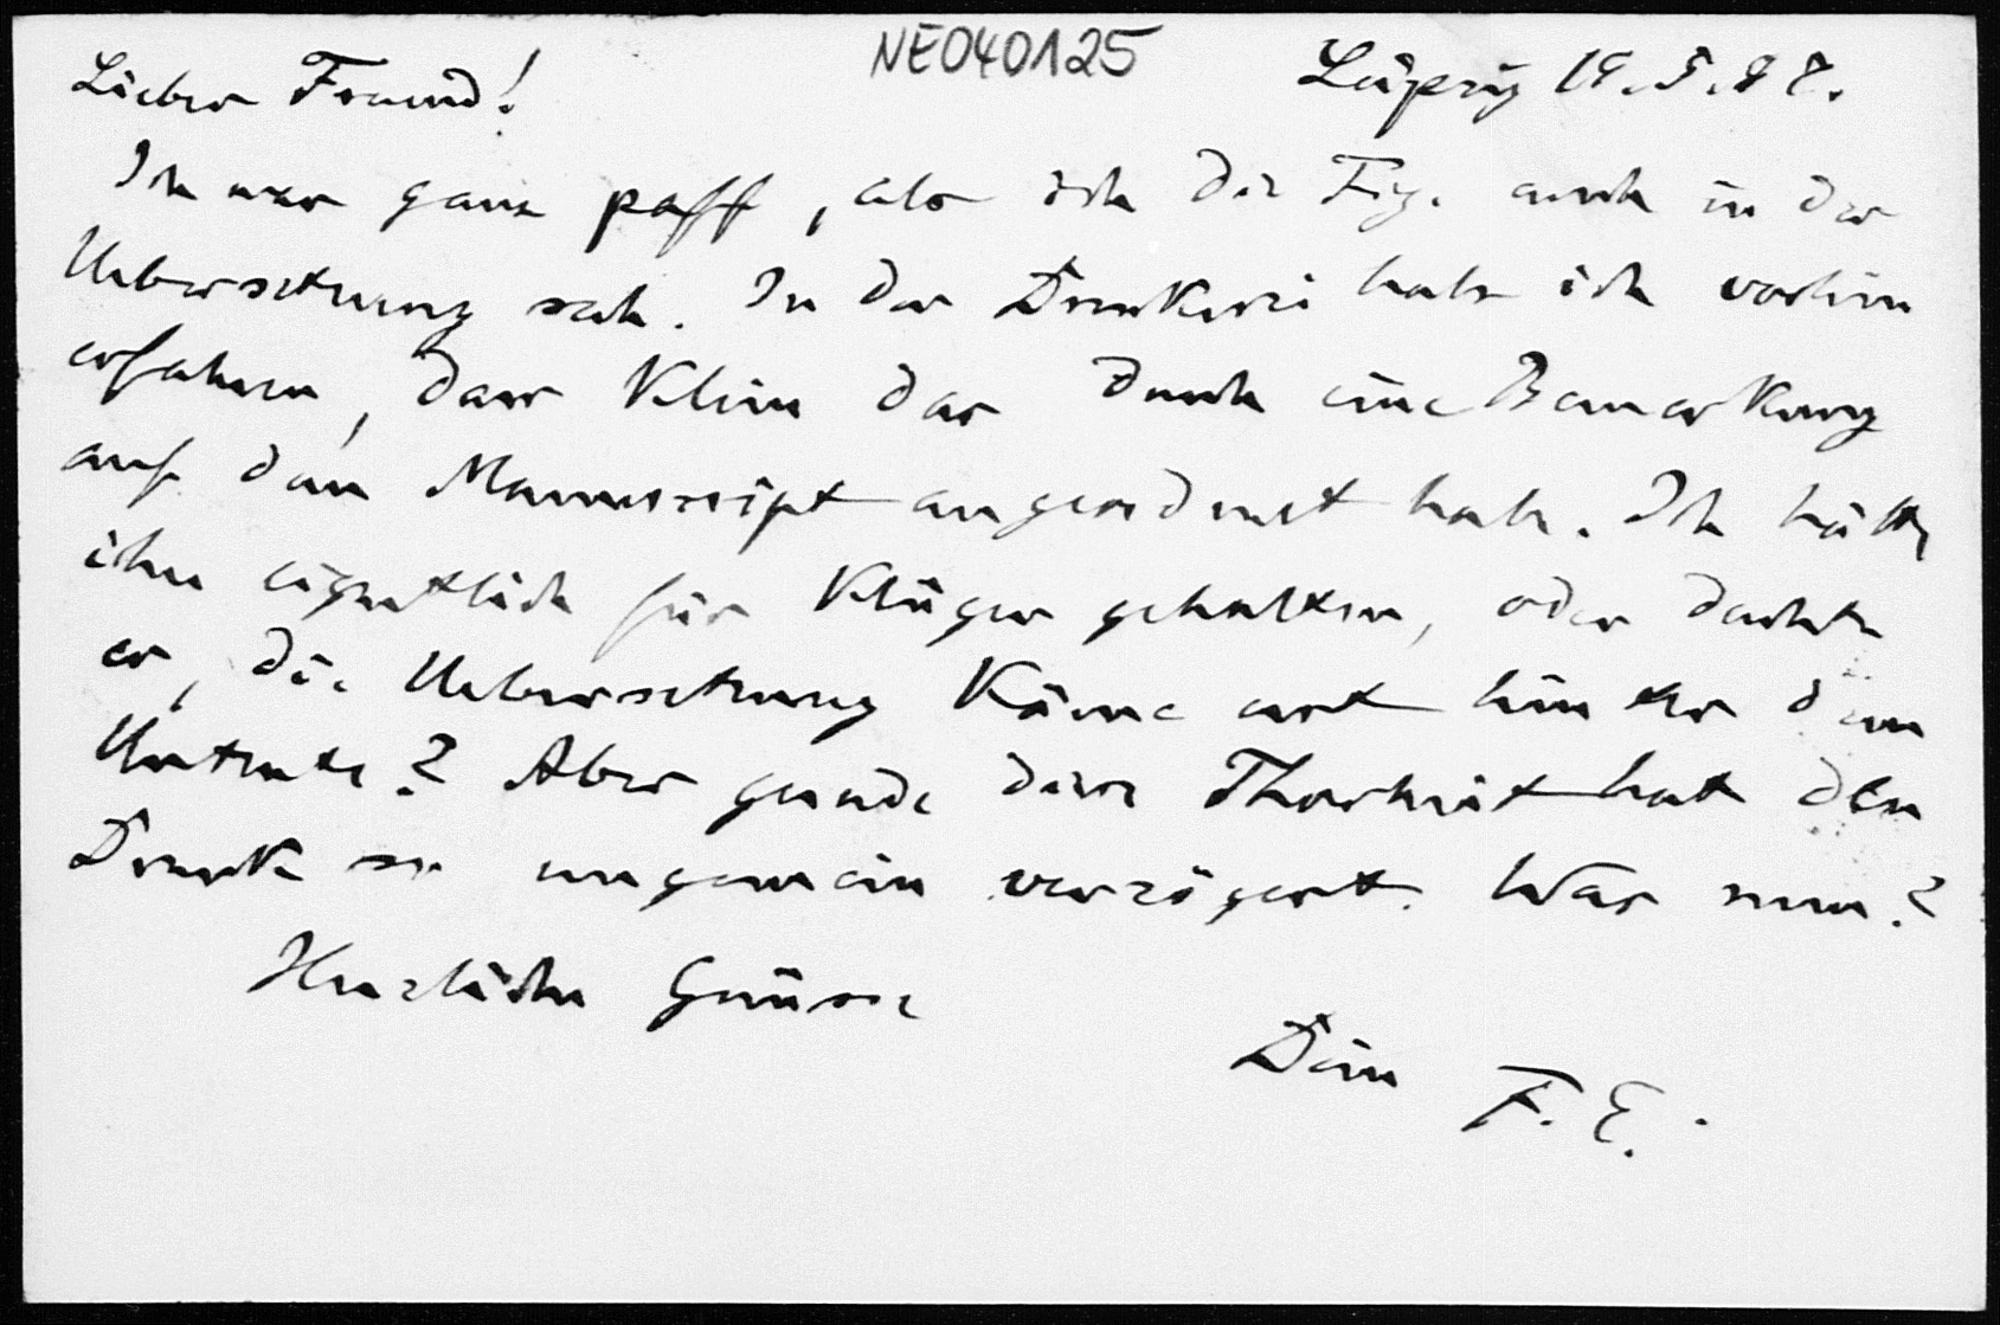 NE040125
Lieber Freund! Leipzig 19.5.98.
Ich war ganz paff, als ich die Fig. auch in der
Uebersetzung sah. In der Druckerei habe ich vorhin
erfahren, dass Klein das durch eine Bemerkung
auf dem Manuscript angeordnet habe. Ich hätte
ihn eigentlich für klüger gehalten, oder dachte
er, die Uebersetzung käme erst hinter dem
Urtexte? Aber gerade diese Thorheit hat den
Druck so ungemein verzögert. Was nun?
Herzliche Grüsse
Dein F. E.